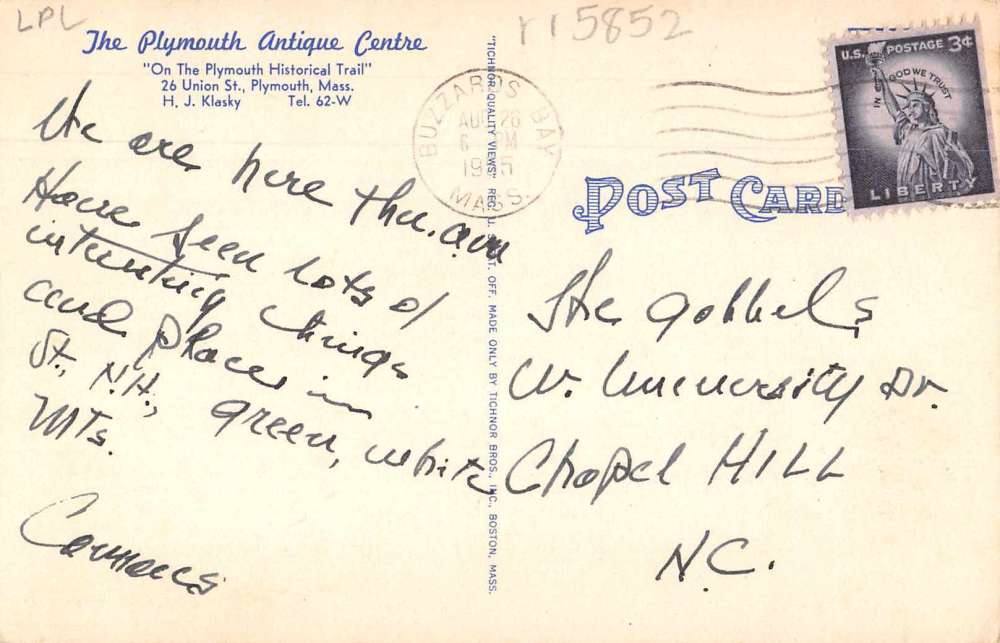 LPL
r15852
The Plymouth Antique Centre
"On The Plymouth Historical Trail"
26 Union St., Plymouth, Mass.
H. J. Klasky Tel. 62-W
"TICHNOR QUALITY VIEWS" REG. U. S. PAT. OFF. MADE ONLY BY TICHNOR BROS., INC., BOSTON, MASS.
BUZZARDS BAY
AUG 26
6 PM
MASS.
U.S. POSTAGE 3¢
IN GOD WE TRUST
LIBERTY
POST CARD
We are here
Have seen lots of
interesting things
and places in
Vt., N.H., green, white
MTs.
The Gobbels
W. University Dr.
Chapel HILL
N.C.